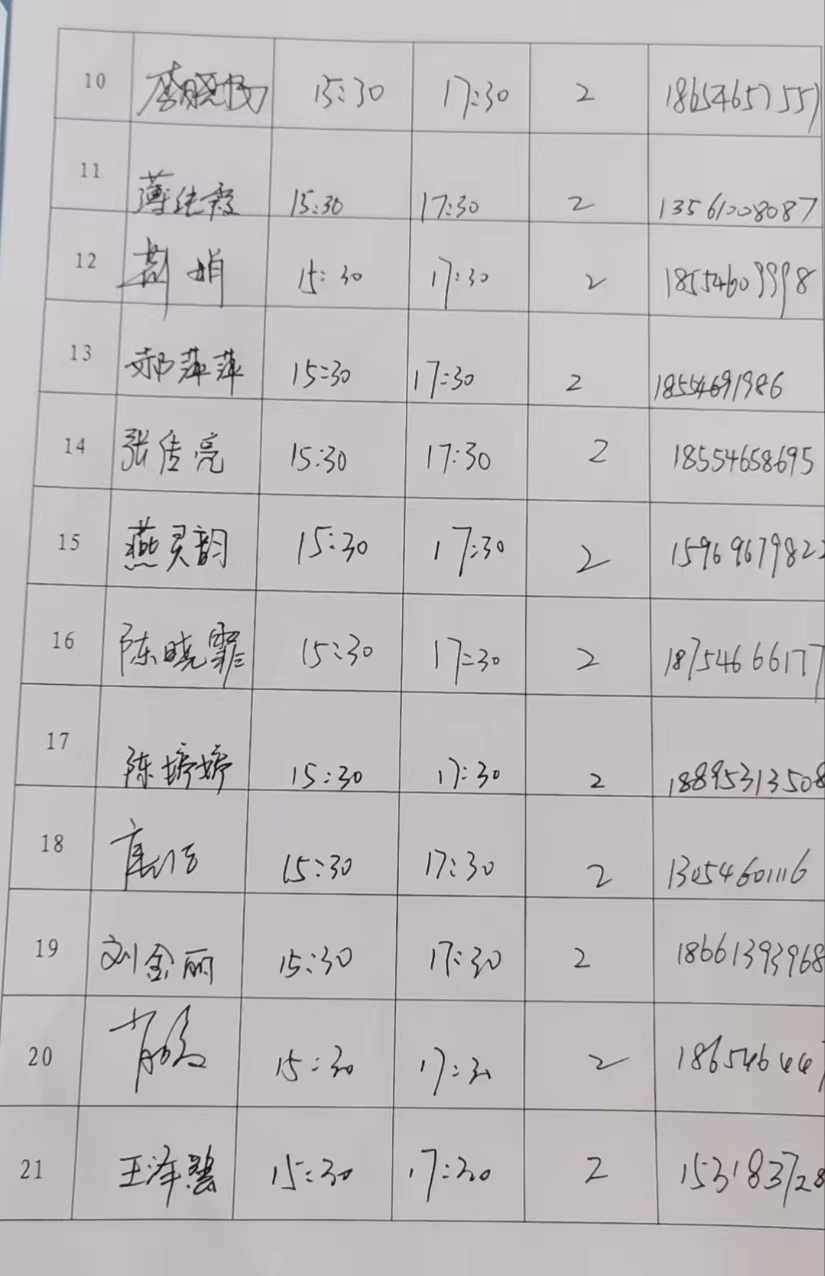 10 李晓杨 15:30 17:30 2 18654657557
11 薄纯霞 15:30 17:30 2 13561008087
12 娟 15:30 17:30 2 18554609998
13 郝萍萍 15:30 17:30 2 18554691986
14 张传亮 15:30 17:30 2 18554658695
15 燕灵韵 15:30 17:30 2 15969679822
16 陈晓霏 15:30 17:30 2 18754666177
17 陈婷婷 15:30 17:30 2 18895313508
18 15:30 17:30 2 13054601116
19 刘金丽 15:30 17:30 2 18661393968
20 15:30 17:30 2 186546447
21 王泽慧 15:30 17:30 2 153183728